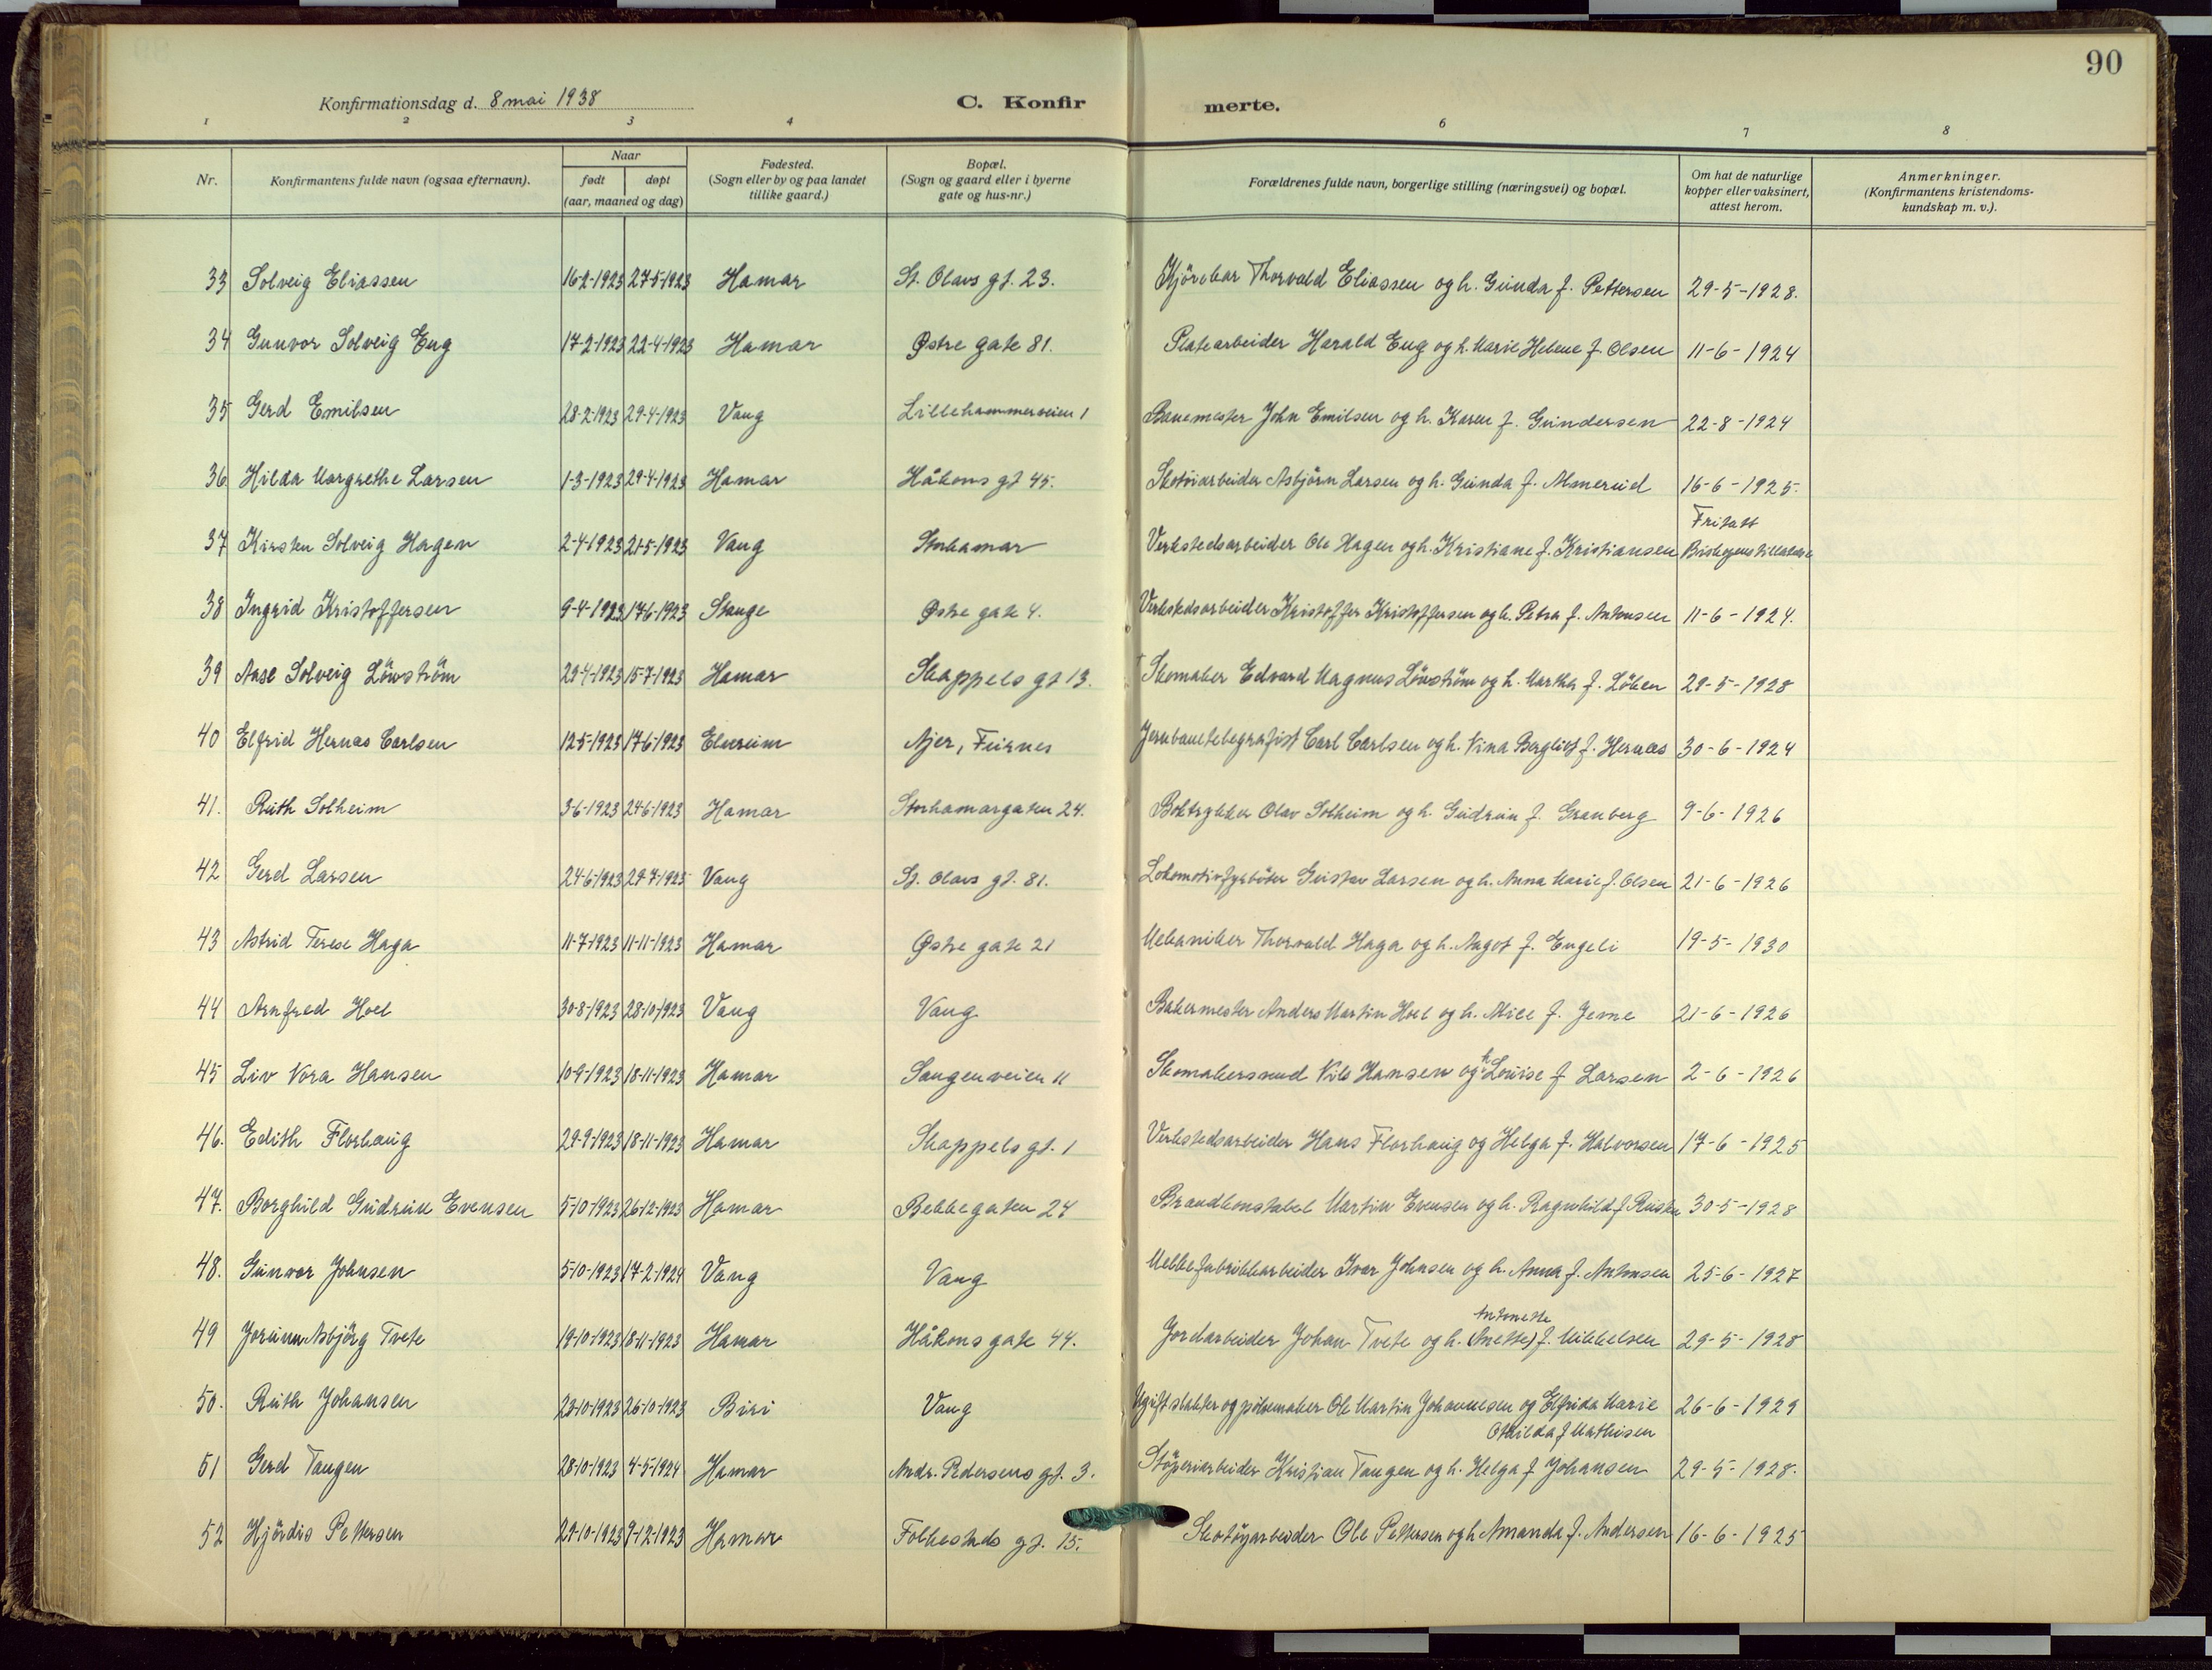 90
Konfirmationsdag d. 8 mai 1938
C. Konfirmerte.
1 2 3 4 6 7 8
Nr.
Konfirmantens fulde navn (ogsaa efternavn).
Naar
født døpt
(aar, maaned og dag)
Fødested.
(Sogn eller by og paa landet
tillike gaard.)
Bopæl.
(Sogn og gaard eller i byerne
gate og hus-nr.)
Forældrenes fulde navn, borgerlige stilling (næringsvei) og bopæl.
Om hat de naturlige
kopper eller vaksinert,
attest herom.
Anmerkninger.
(Konfirmantens kristendoms-
kundskap m. v.).
33 Solveig Eliassen 16-2-1923 27-5-1923 Hamar St. Olavs gt. 23. Kjörekar Thorvald Eliassen og h. Gunda f. Pettersen 29-5-1928.
34 Gunvor Solveig Eng 17-2-1923 22-4-1923 Hamar Østre gate 81. Platearbeider Harald Eng og h. Marie Helene f. Olsen 11-6-1924
35 Gerd Emilsen 28-2-1923 29-4-1923 Vang Lillehammerveien 1 Banemester John Emilsen og h. Karen f. Gundersen 22-8-1924
36 Hilda Margrethe Larsen 1-3-1923 29-4-1923 Hamar Håkons gt 45. Skotöiarbeider Asbjörn Larsen og h. Gunda f. Almerud 16-6-1925.
37 Kirsten Solveig Hagen 2-4-1923 21-5-1923 Vang Storhamar Verkstedsarbeider Ole Hagen og h. Kristiane f. Kristiansen Fritatt
Biskopens tillatelse
38 Ingrid Kristoffersen 9-4-1923 17-6-1923 Stange Østre gate 4. Verkstedsarbeider Kristoffer Kristoffersen og h. Petra f. Antonsen 11-6-1924.
39 Aase Solveig Lövström 29-4-1923 15-7-1923 Hamar Skappels gt 13. Skomaker Edvard Magnus Lövström og h. Martha f. Löken 29-5-1928
40 Elfrid Hernæs Carlsen 12-5-1923 17-6-1923 Elverum Ajer, Furnes Jernbanetelegrafist Carl Carlsen og h. Nina Bergliot f. Hernæs 30-6-1924
41. Ruth Solheim 3-6-1923 24-6-1923 Hamar Storhamargaten 24. Boktrykker Olav Solheim og h. Gudrun f. Granberg 9-6-1926
42 Gerd Larsen 24-6-1923 29-7-1925 Vang St. Olavs gt. 81. Lokomotivfyrböter Gustav Larsen og h. Anna Marie f. Olsen 21-6-1926
43 Astrid Terese Haga 11-7-1923 11-11-1923 Hamar Østre gate 21 Mekaniker Thorvald Haga og h. Aagot f. Engeli 19-5-1930
44 Arnfred Hoel 30-8-1923 28-10-1923 Vang Vang Bakermester Anders Martin Hoel og h. Alice f. Jeme 21-6-1926
45 Liv Nora Hansen 10-9-1923 18-11-1923 Hamar Sangenveien 11 Skomakersvend Nils Hansen og h. Louise f Larsen 2-6-1926
46. Edith Florhaug 29-9-1923 18-11-1923 Hamar Skappels gt. 1 Verkstedsarbeider Hans Florhaug og Helga f. Halvorsen 17-6-1925
47. Borghild Gudrun Evensen 5-10-1923 26-12-1923 Hamar Bekkegaten 24 Brandkonstabel Martin Evensen og h. Ragnhild f Rusten 30-5-1928
48. Gunvor Johnsen 5-10-1923 17-2-1924 Vang Vang Melkefabrikkarbeider Ivar Johnsen og h. Anna f. Antonsen 25-6-1927
49 Jorunn Asbjörg Tvete 19-10-1923 18-11-1923 Hamar Håkons gate 44. Jordarbeider Johan Tvete og h. Antonette
(Anette) f. Mikkelsen 29-5-1928
50. Ruth Johansen 23-10-1923 26-10-1923 Biri Vang Ugift slakter og pölsemaker Ole Martin Johannesen og Elfrida Marie
Othilda f Mathisen 26-6-1929
51 Gerd Tangen 28-10-1923 4-5-1924 Hamar Andr. Pedersens gt. 3. Stöperiarbeider Kristian Tangen og h. Helga f Johansen 29-5-1928.
52 Hjördis Pettersen 29-10-1923 9-12-1923 Hamar Folkestads gt. 15. Skotöyarbeider Ole Pettersen og h Amanda f. Andersen 16-6-1925